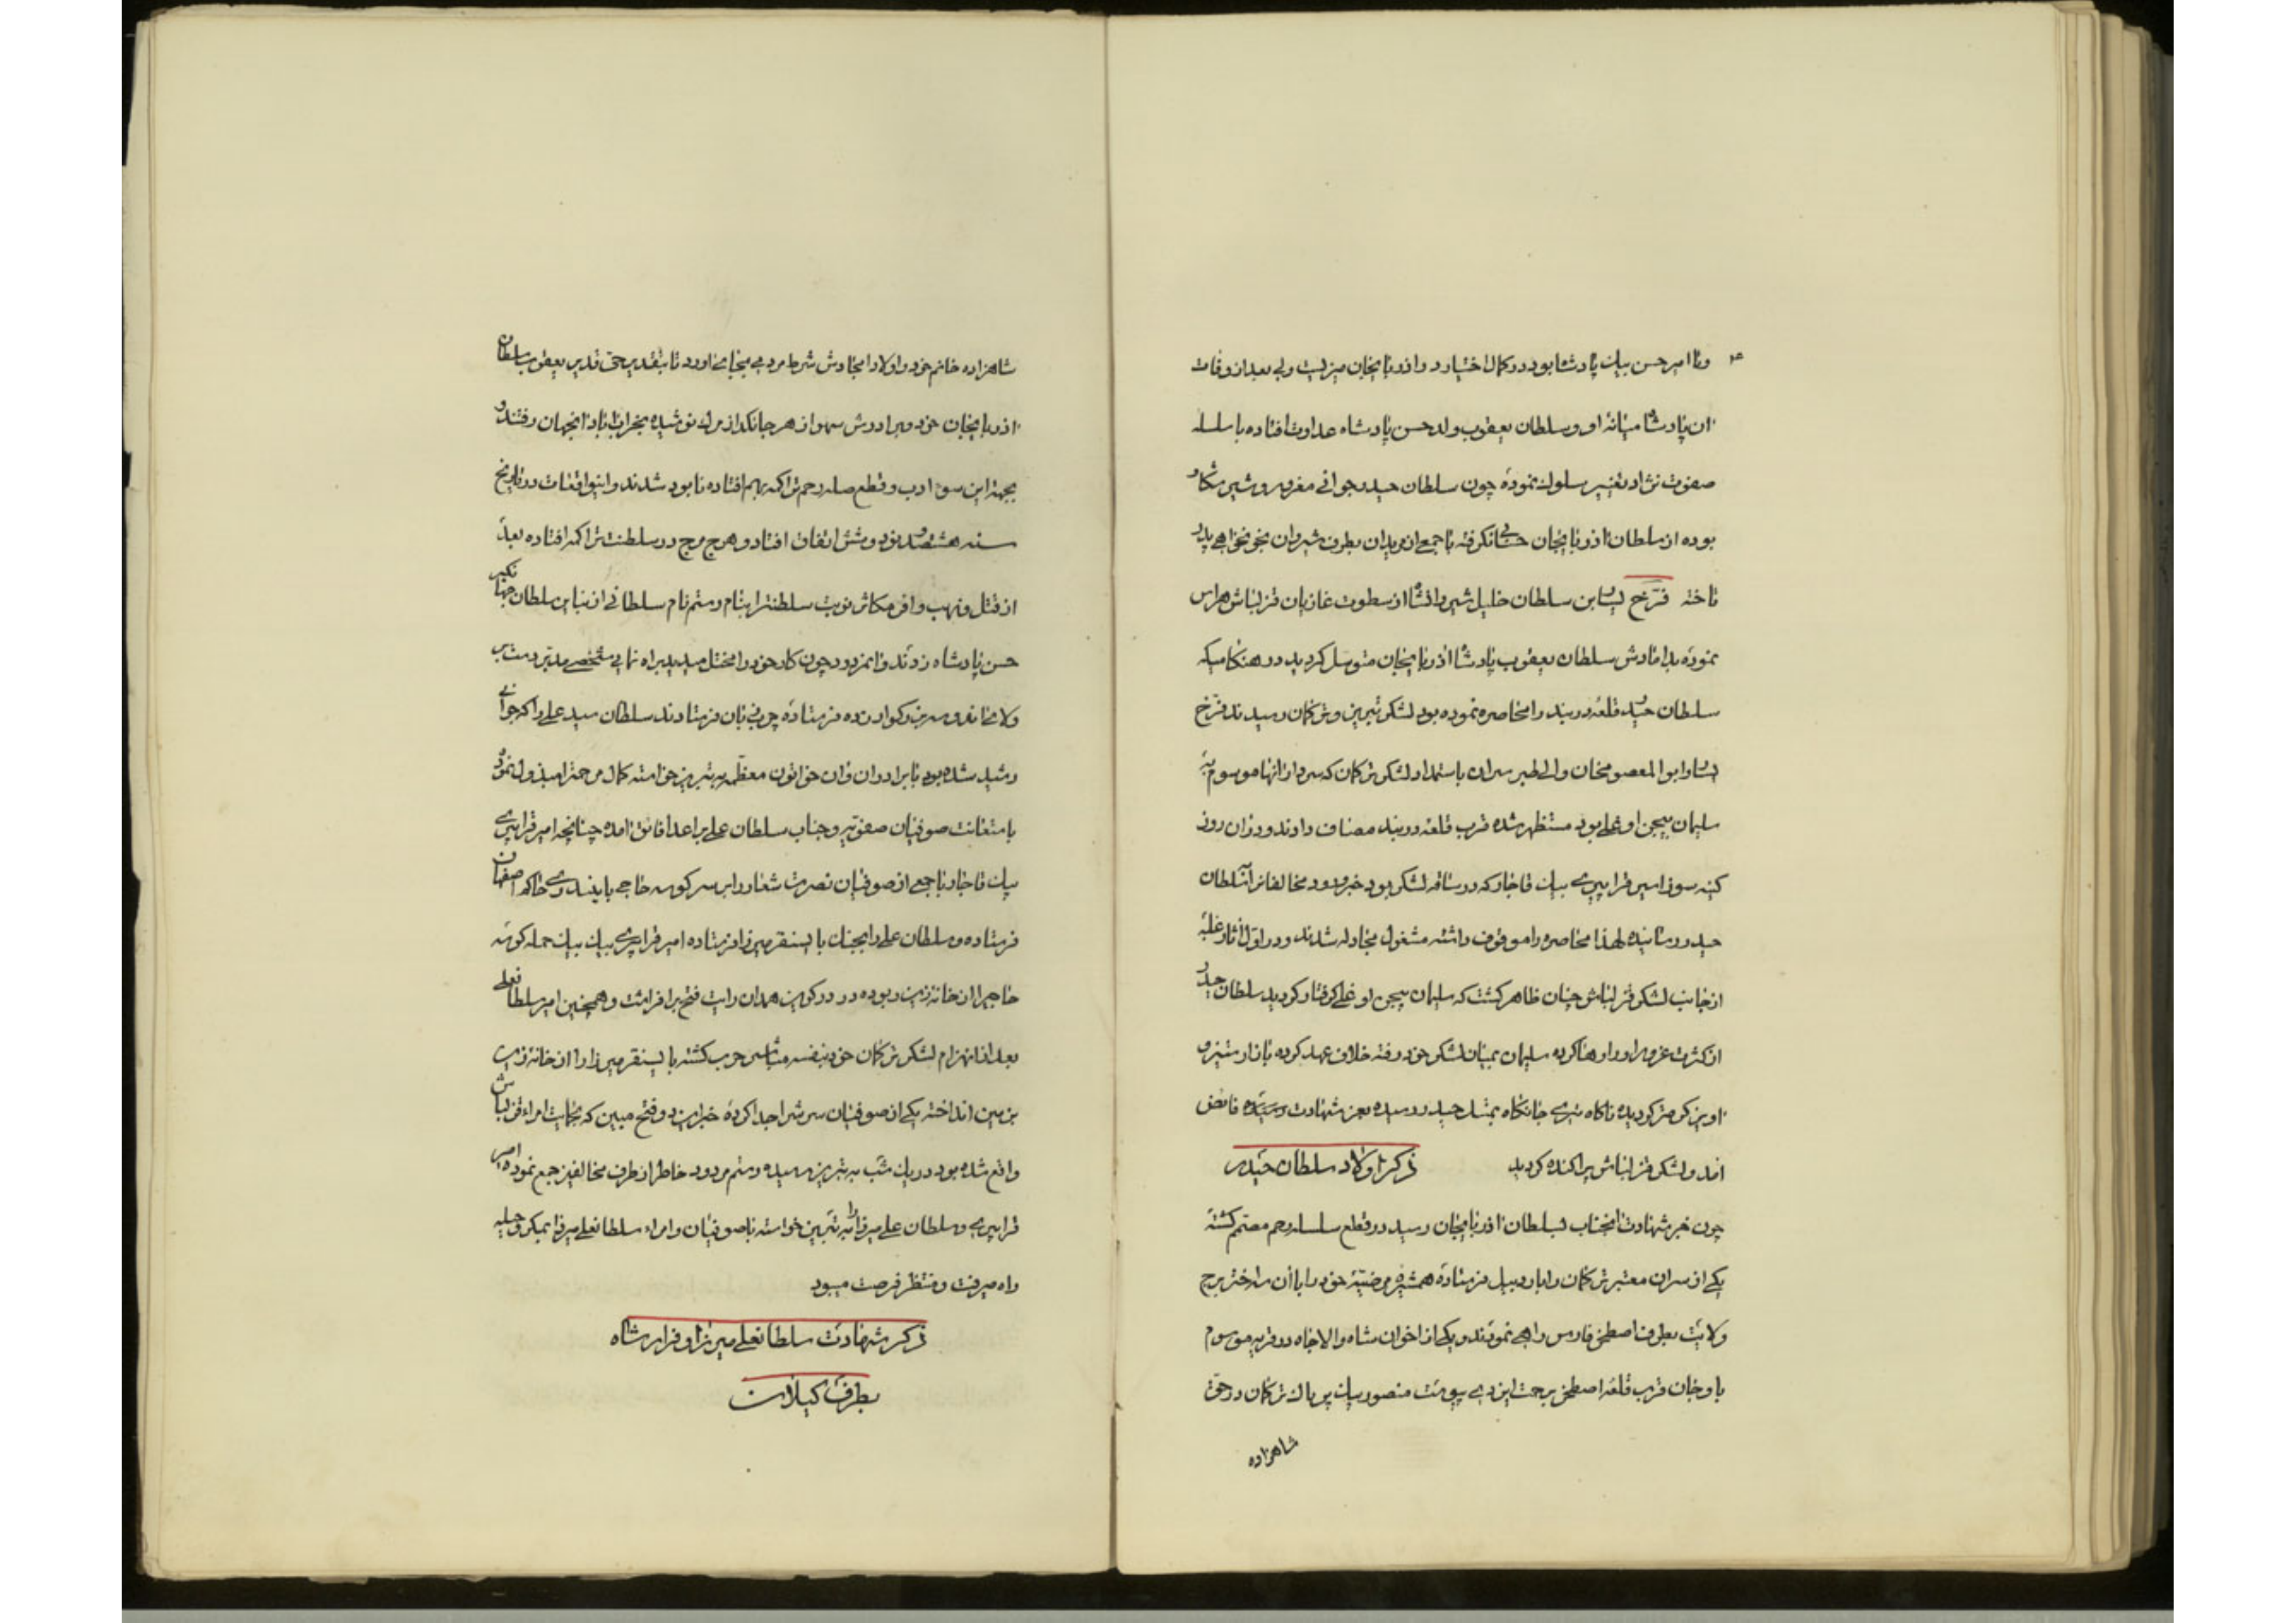 وفا امیر حسن بیك پادشا بود در كمال اختیار در اذربایجان میزیست ولی بعد از وفات
ان پادشاه میانه او و سلطان یعقوب ولد حسن پادشاه عداوت افتاده با سلسله
صفوت نژاد تغییر سلوك نموده چون سلطان حیدر جوانی مغرور و شیر شكار
بوده از سلطان اذربایجان حسابی نكرفته با جمعی از مریدان بطرف شیروان بخونخواهی پدر
تاخته فرخ یسار بن سلطان خلیل شیروانشاه از سطوت غازیان قزلباش هراس
نموده بدامادش سلطان یعقوب پادشا اذربایجان متوسل كردید در هنكامیكه
سلطان حیدر قلعه دربند را محاصره نموده بود لشكر تبریز و تركمان رسیدند فرخ
یسار و ابوالمعصومخان والی طبرسران باستمداد لشكر تركمان كه سردار انها موسوم به
سلیمان بیجن اوغلی بود مستظهر شده قرب قلعه دربند مصاف دادند و دران روز
كینه سوز امیر قراپیری بیك قاجار كه در ساقه لشكر بود خبر ورود مخالفانرا بسلطان
حیدر رسانیده لهذا محاصره را موقوف داشته مشغول مجادله شدند و در اول اثار غلبه
از جانب لشكر قزلباش چنان ظاهر كشت كه سلیمان بیجن اوغلی كرفتار كردید سلطان حیدر
از كثرت غرور او را رها كرده سلیمان بمیان لشكر خود رفته خلاف عهد كرده بازار ستیز و
اویز كرمتر كردیده ناكاه تیری جانكاه بمثل حیدر رسیده بعز شهادت رسیده فایض
امد و لشكر قزلباش پراكنده كردید ذكر اولاد سلطان حیدر
چون خبر شهادت انجناب بسلطان اذربایجان رسید در قطع سلسله رحم مصمم كشته
یكی از سران معتبر تركمان را باردبیل فرستاده همشیره مرضیه خود را با ان سه اختر برج
ولایت بطرف اصطخر فارس راهی نمودند و یكی از اخوان شاه والاجاه در قریه موسوم
باوجان قرب قلعه اصطخر برحمت ایزدی پیوست منصور بیك پرناك تركمان در حق
شاهزاده
شاهزاده خانم خود و اولاد امجادش شرط مردمی بجای می اورد تا بتقدیر حق قدیر یعقوب سلطان
اذربایجان خود و برادرش سهوا زهر جانكداز مرك نوشیده بخراب اباد انجهان رفتند و
بجهة این سوء ادب و قطع صله رحم تراكمه بهم افتاده نابود شدند و اینواقعات در تاریخ
سنه هشتصد و نود و شش اتفاق افتاد و هرج مرج در سلطنت تراكمه افتاده بعد
از قتل و نهب وافر مكاشر نوبت سلطنت را بنام رستم نام سلطانی از نبایر سلطان جهانكیر
حسن پادشاه زدند و انمزدور چون كار خود را مختل میدید براه نمایی شخصی مدبر دست بر
ولا مخاندو سر بزركوار نزده فرستاده چرب زبان فرستادند سلطان سید علی را كه جوانی
رشید شده بود با برادران و ان خواتون معظمه به تبریز خواسته كمال مرحمت را مبذول نمود
باستعانت صوفیان صفویه و جناب سلطان علی بر اعدا فایق امده چنانچه امیر قراپیری
بیك قاجار با جمعی از صوفیان نصرت شعار را بر سر كوسه حاجی بایندری حاكم اصفهان
فرستاده و سلطان علی را بجنك بایسنقر میرزا فرستاده امیر قراپیری بیك بیك حمله كوسه
حاجی را از خانه زین ربوده در دركزین همدان رایت فتح برافراشت و همچنین امیر سلطانعلی
بعد از انهزام لشكر تركمان خود بنفسه متباشر حرب كشته بایسنقر میرزا را از خانه زین
بزمین انداخته یكی از صوفیان سرش را جدا كرده خبر این دو فتح مبین كه بحمایت امراء قزلباش
واقع شده بود در یك شب به تبریز رسیده رستم مردود خاطر از طرف مخالفین جمع نموده امیر
قراپیری و سلطان علی میرزا را به تبریز خواسته با صوفیان و امراء سلطانعلی میرزا بمكر و حیله
راه میرفت و منتظر فرصت میبود
ذكر شهادت سلطانعلی میرزا و فرار شاه
بطرف كیلان